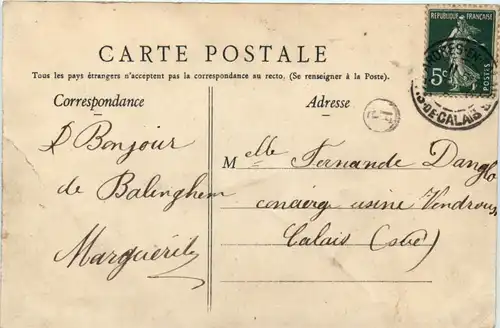 RÉPUBLIQUE FRANÇAISE
5c
POSTES
PAS-DE-CALAIS
CARTE POSTALE
Tous les pays étrangers n'acceptent pas la correspondance au recto. (Se renseigner à la Poste).
Correspondance
Adresse
Bonjour
de Balinghem
Marguerite
Melle Fernande Danglo
concierg usine Vendroux
Calais